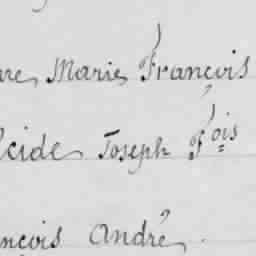 are Marie François
lcide Joseph Fois
nçois André.